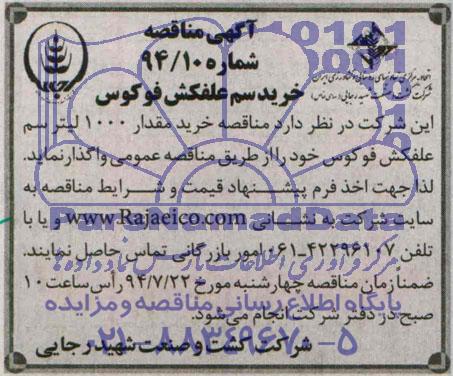 آگهی مناقصه
شماره ۹۴/۱۰
خرید سم علفکش فوکوس
این شرکت در نظر دارد مناقصه خرید مقدار ۱۰۰۰ لیتر سم
علفکش فوکوس خود را از طریق مناقصه عمومی واگذار نماید.
لذا جهت اخذ فرم پیشنهاد قیمت و شرایط مناقصه به
سایت شرکت به نشانی www.Rajaeico.com و یا با
تلفن ۴۲۲۹۶۱۰۷-۰۶۱ امور بازرگانی تماس حاصل نمایند.
ضمناً زمان مناقصه چهارشنبه مورخ ۹۴/۷/۲۲ رأس ساعت ۱۰
صبح در دفتر شرکت انجام می‌شود.
شرکت کشت و صنعت شهید رجایی
ParsNamadData
مرکز فرآوری اطلاعات پارس نماد داده ها
پایگاه اطلاع رسانی مناقصه و مزایده
۰۲۱-۸۸۳۴۹۶۷۰-۵